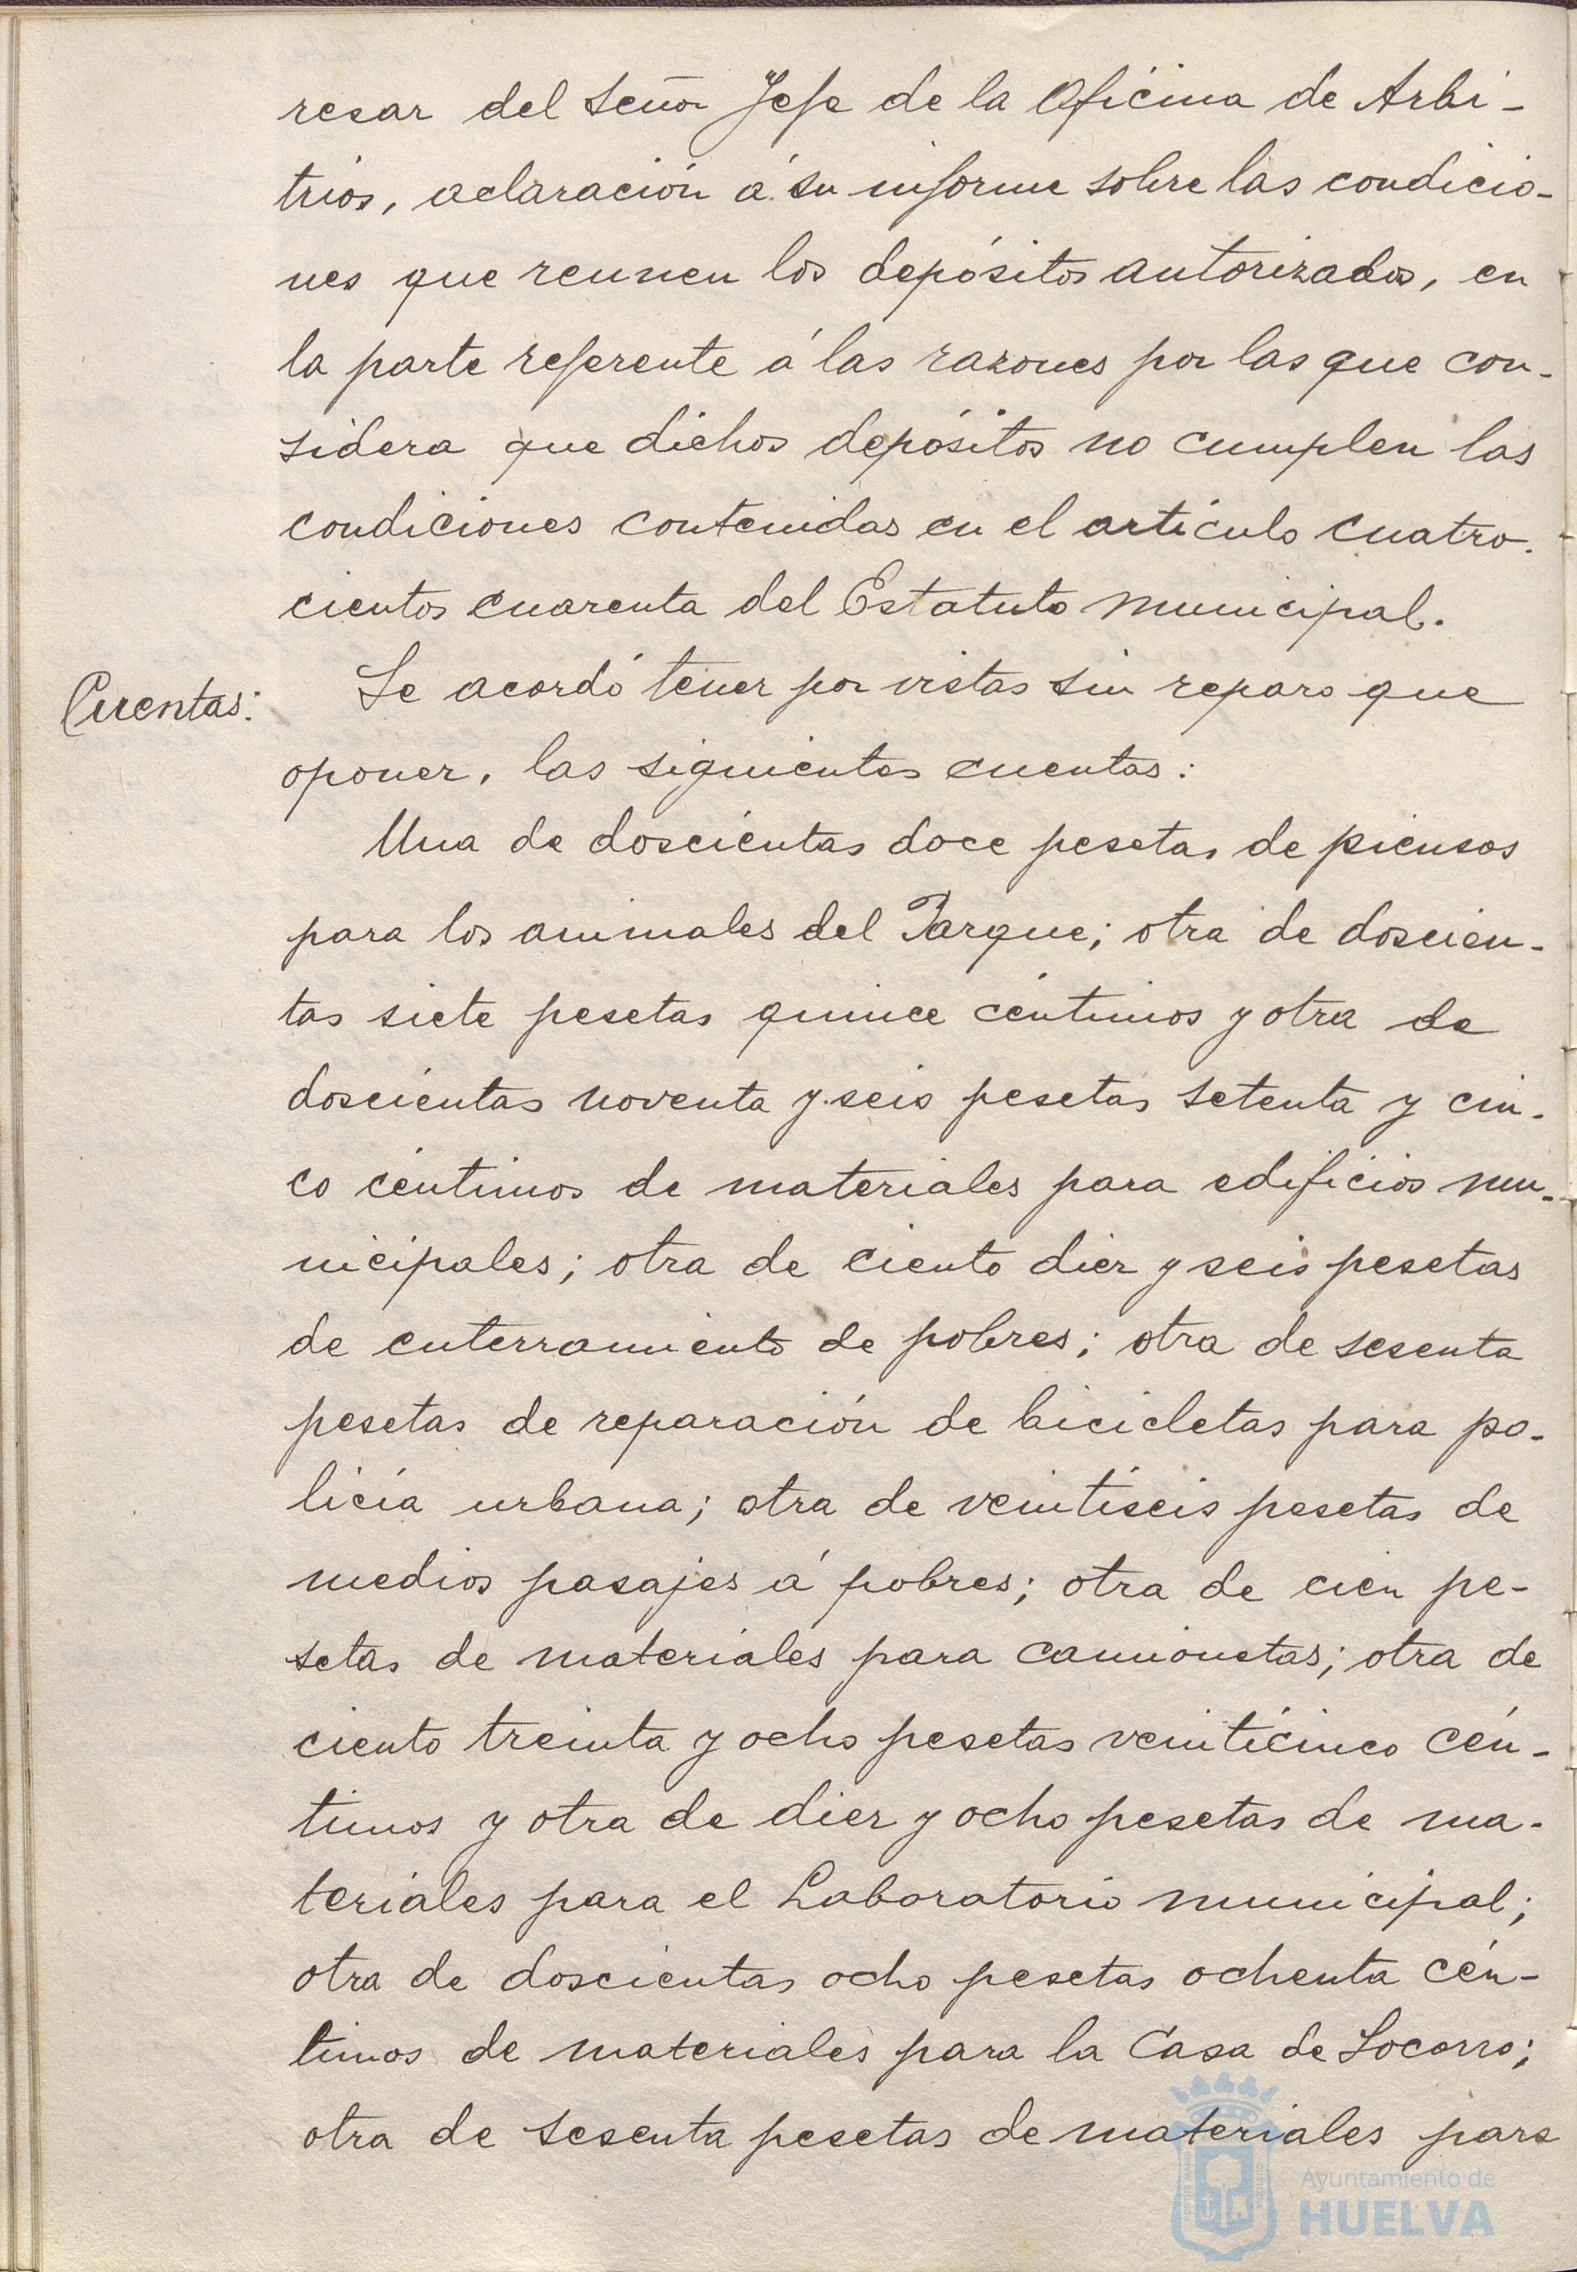 resar del Señor Jefe de la Oficina de Arbi-
trios, aclaración á su informe sobre las condicio-
nes que reunen los depósitos autorizados, en
la parte referente á las razones por las que con-
sidera que dichos depósitos no cumplen las
condiciones contenidas en el artículo cuatro-
cientos cuarenta del Estatuto municipal.
Cuentas:
Se acordó tener por vistas sin reparo que
oponer, las siguientes cuentas:
Una de doscientas doce pesetas de piensos
para los animales del Parque; otra de doscien-
tas siete pesetas quince céntimos y otra de
doscientas noventa y seis pesetas setenta y cin-
co céntimos de materiales para edificios mu-
nicipales; otra de ciento diez y seis pesetas
de enterramiento de pobres; otra de sesenta
pesetas de reparación de bicicletas para po-
licía urbana; otra de veintiseis pesetas de
medios pasajes á pobres; otra de cien pe-
setas de materiales para camionetas; otra de
ciento treinta y ocho pesetas veinticinco cén-
timos y otra de diez y ocho pesetas de ma-
teriales para el Laboratorio municipal;
otra de doscientas ocho pesetas ochenta cén-
timos de materiales para la Casa de Socorro;
otra de sesenta pesetas de materiales para
Ayuntamiento de
HUELVA